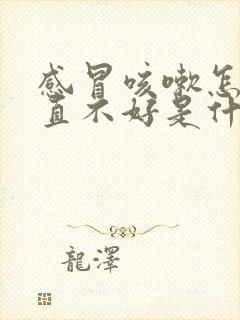 感冒咳嗽怎
直不好是什
龍澤